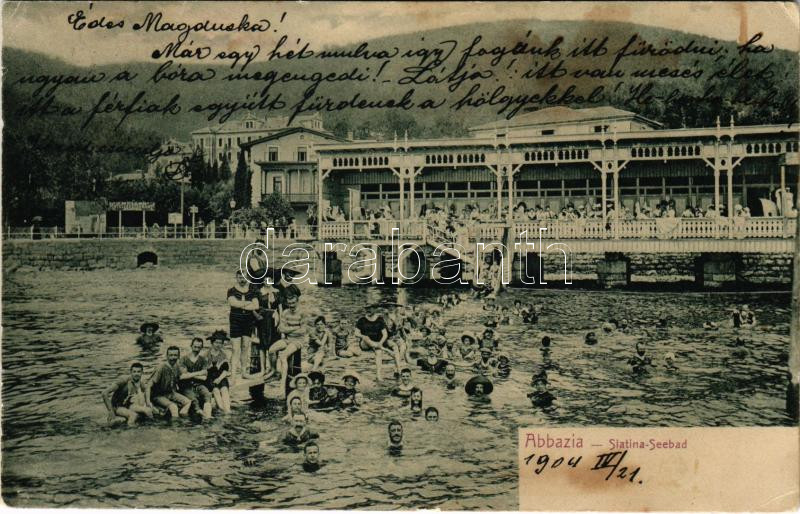 Édes Magduska!
Már egy hét mulva így fogunk itt fürödni, ha
ugyan a bóra megengedi! - Látja! itt van mesés élet,
itt a férfiak együtt fürdenek a hölgyekkel!
darabanth
Abbazia — Slatina-Seebad
1904 IV/21.